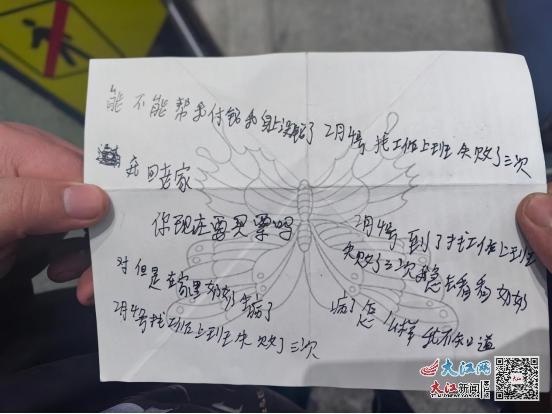 能不能帮我付钱我身上没钱了2月4号找工作上班失败了三次
在回老家
你现在要见票吗
2月4号到了找工作上班
失败了三次着急去看看奶奶
对但是老家里奶奶生病了
病了怎么样我不知道
2月4号找工作上班失败了三次
大江网
大江新闻